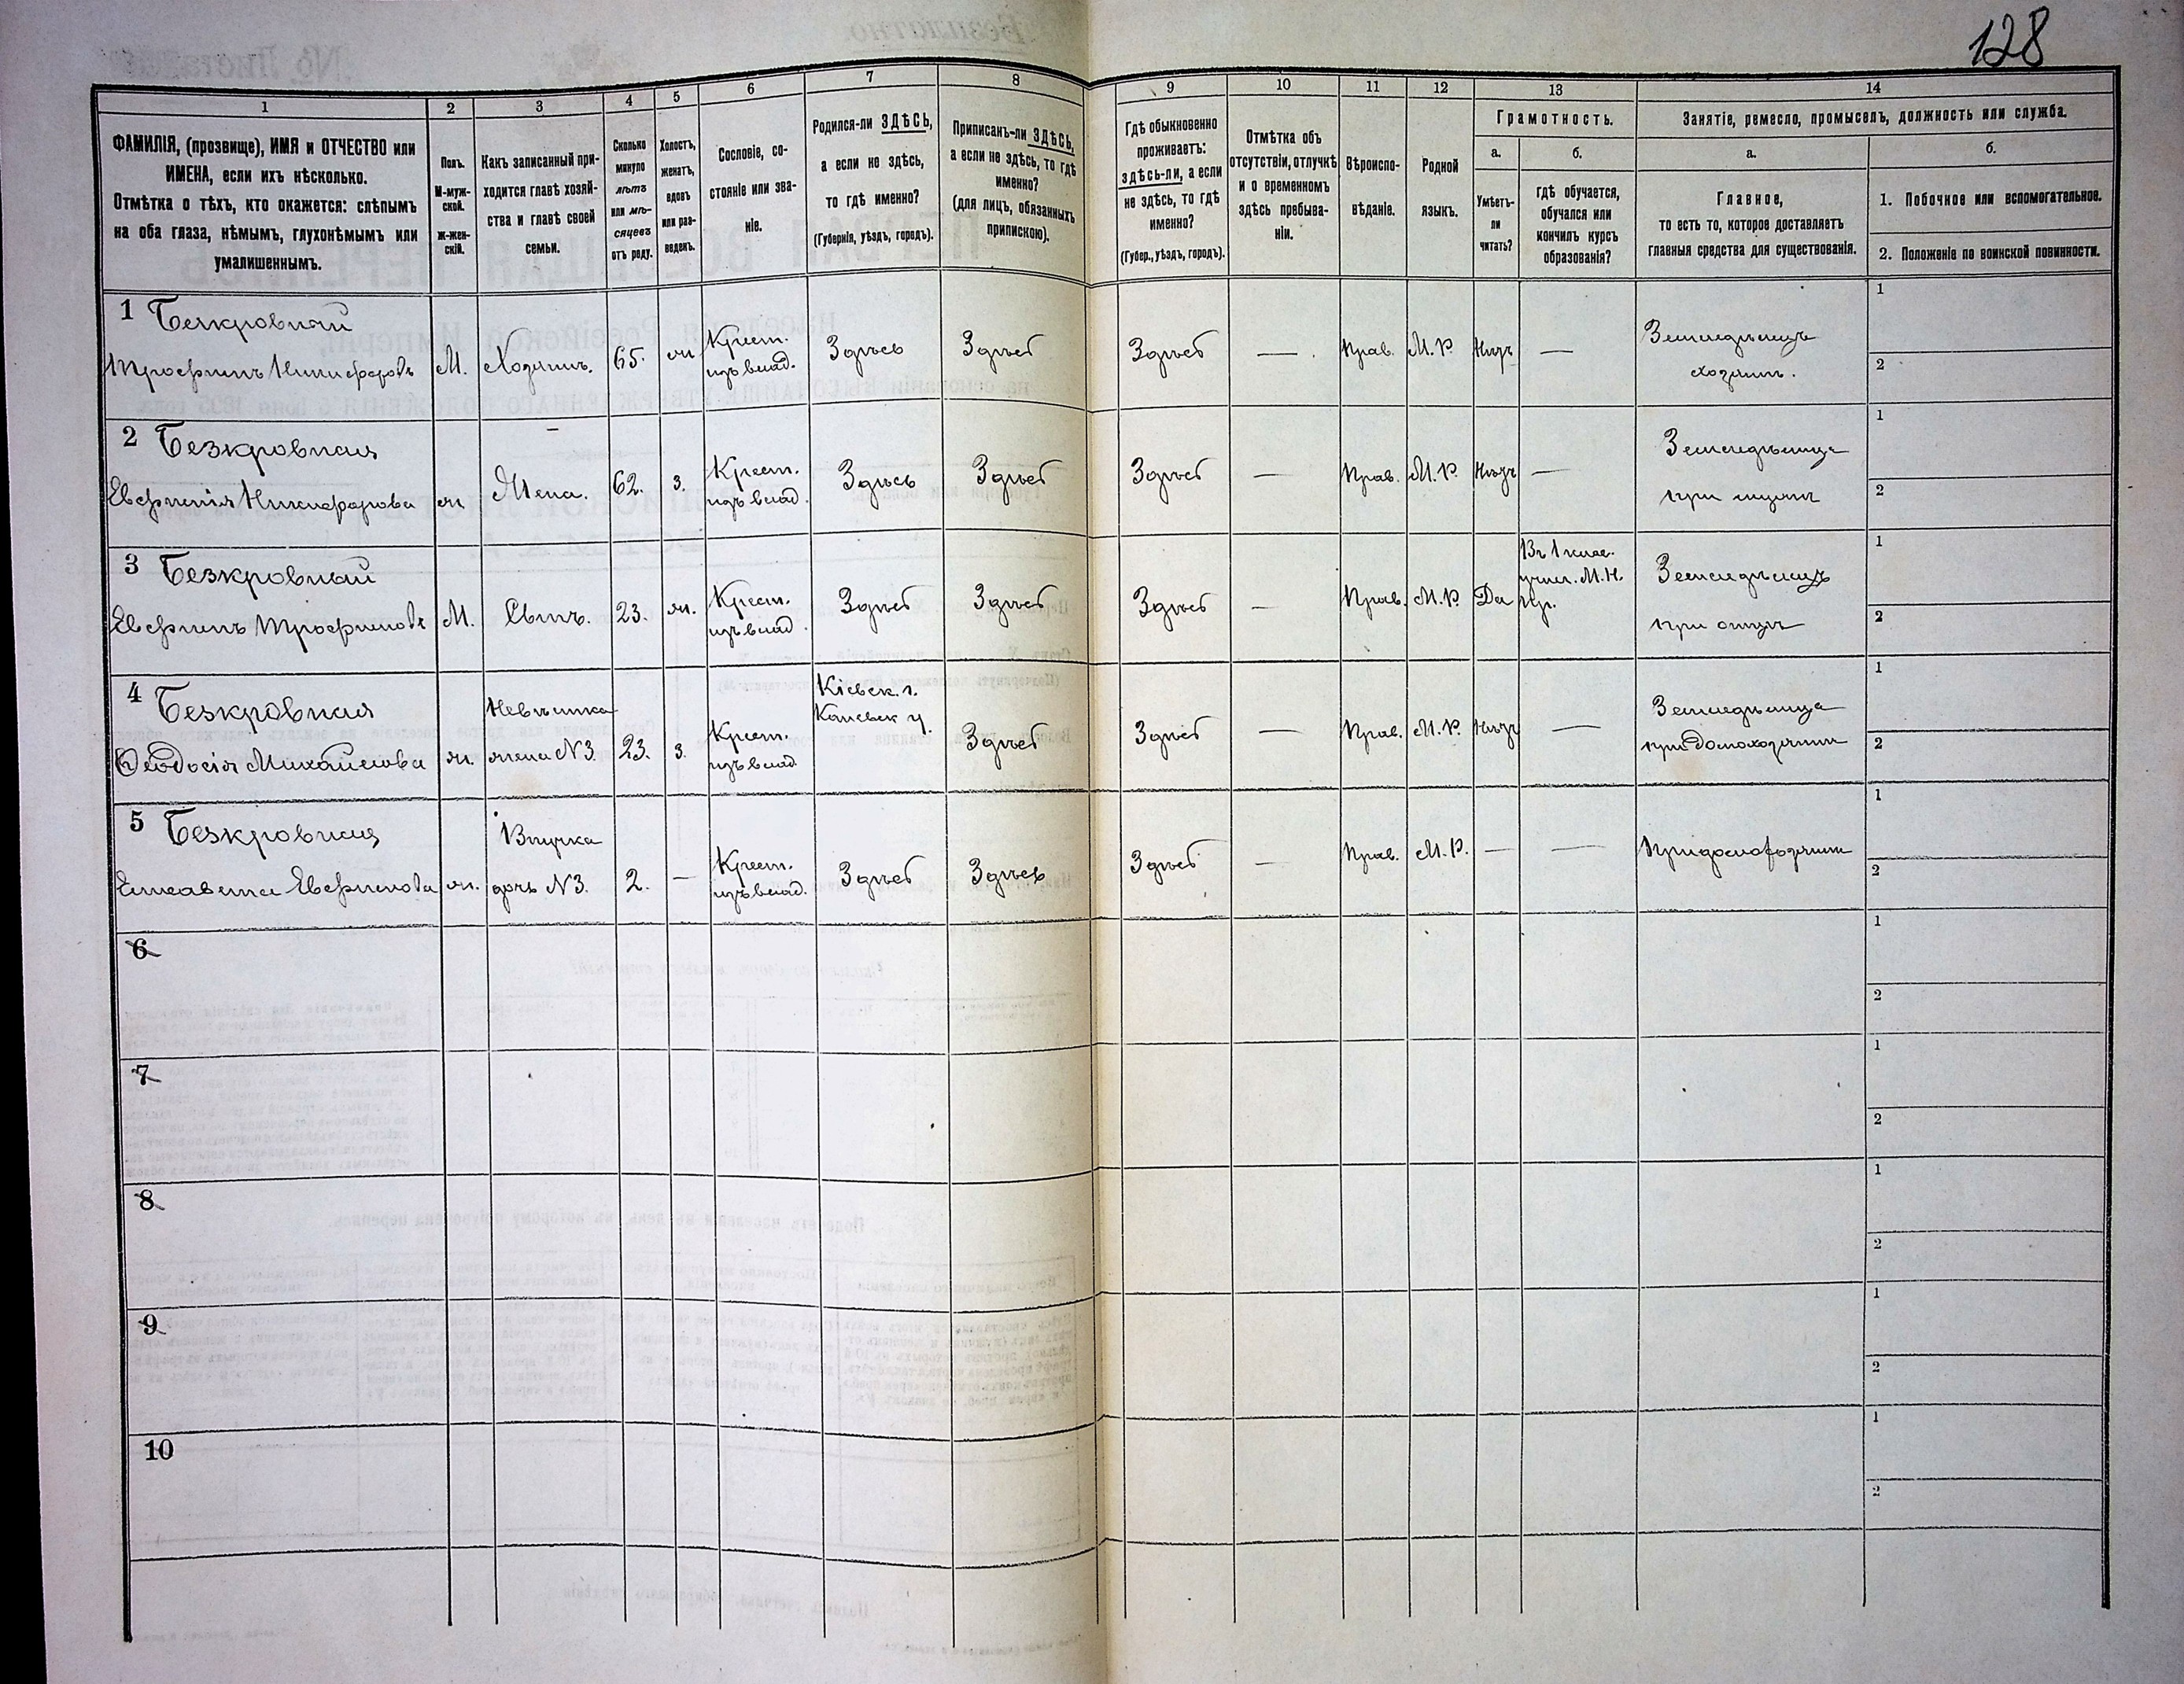 128
1 2 3 4 5 6 7 8 9 10 11 12 13 14
ФАМИЛІЯ, (прозвище), ИМЯ и ОТЧЕСТВО или
ИМЕНА, если ихъ нѣсколько.
Отмѣтка о тѣхъ, кто окажется: слѣпымъ
на оба глаза, нѣмымъ, глухонѣмымъ или
умалишеннымъ.
Полъ.
М-муж-
ской.
ж-жен-
скій.
Какъ записанный при-
ходится главѣ хозяй-
ства и главѣ своей
семьи.
Сколько
минуло
лѣтъ
или мѣ-
сяцевъ
отъ роду.
Холостъ,
женатъ,
вдовъ
или раз-
веденъ.
Сословіе, со-
стояніе или зва-
ніе.
Родился-ли ЗДѢСЬ,
а если не здѣсь,
то гдѣ именно?
(Губернія, уѣздъ, городъ).
Приписанъ-ли ЗДѢСЬ,
а если не здѣсь, то гдѣ
именно?
(для лицъ, обязанныхъ
припискою).
Гдѣ обыкновенно
проживаетъ:
здѣсь-ли, а если
не здѣсь, то гдѣ
именно?
(Губер., уѣздъ, городъ).
Отмѣтка объ
отсутствіи, отлучкѣ
и о временномъ
здѣсь пребыва-
ніи.
Вѣроиспо-
вѣданіе.
Родной
языкъ.
Грамотность.
а.
Умѣетъ-
ли
читать?
б.
гдѣ обучается,
обучался или
кончилъ курсъ
образованія?
Занятіе, ремесло, промыселъ, должность или служба.
а.
Главное,
то есть то, которое доставляетъ
главныя средства для существованія.
б.
1. Побочное или вспомогательное.
2. Положеніе по воинской повинности.
1 Безкровный
Трофимъ Никифоровъ
М.
Хозяинъ.
65.
ж
Крест.
изъ влад.
Здѣсь
Здѣсь
Здѣсь
— .
Прав.
М. Р.
Нѣтъ
—
Земледѣлецъ
хозяинъ.
1
2
2 Безкровная
Евфимія Никифорова
ж
Жена.
62.
з.
Крест.
изъ влад.
Здѣсь
Здѣсь
Здѣсь
—
Прав.
М. Р.
Нѣтъ
—
Земледѣлица
при мужѣ
1
2
3 Безкровный
Евфимъ Трофимовъ
М.
Сынъ.
23.
ж.
Крест.
изъ влад.
Здѣсь
Здѣсь
Здѣсь
—
Прав.
М. Р.
Да
Въ 1 клас.
учил. М. Н.
Пр.
Земледѣлецъ
при отцѣ
1
2
4 Безкровная
Ѳеодосія Михайлова
ж.
Невѣстка
жена N3
23.
з.
Крест.
изъ влад.
Кіевск. г.
Каневск у.
Здѣсь
Здѣсь
—
Прав.
М. Р.
Нѣтъ
—
Земледѣлица
при домохозяинѣ
1
2
5 Безкровная
Елисавета Евфимова
ж.
Внучка
дочь N3.
2.
—
Крест.
изъ влад.
Здѣсь
Здѣсь
Здѣсь
—
Прав.
М. Р.
—
—
При домохозяинѣ
1
2
6
1
2
7
1
2
8
1
2
9
1
2
10
1
2